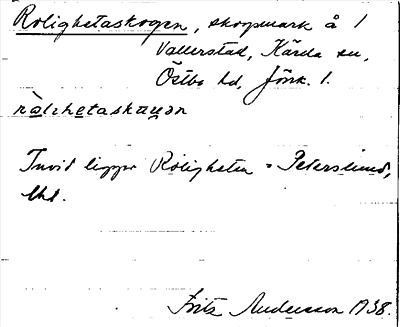 Rolighetaskogen, skogmark å 1
Vallerstad, Kärda sn,
Östbo hd, Jönk. l.
rɷlıhetaskaugən
Invid ligger Roligheten = Peterslund,
lht.
Fritz Andersson 1938.